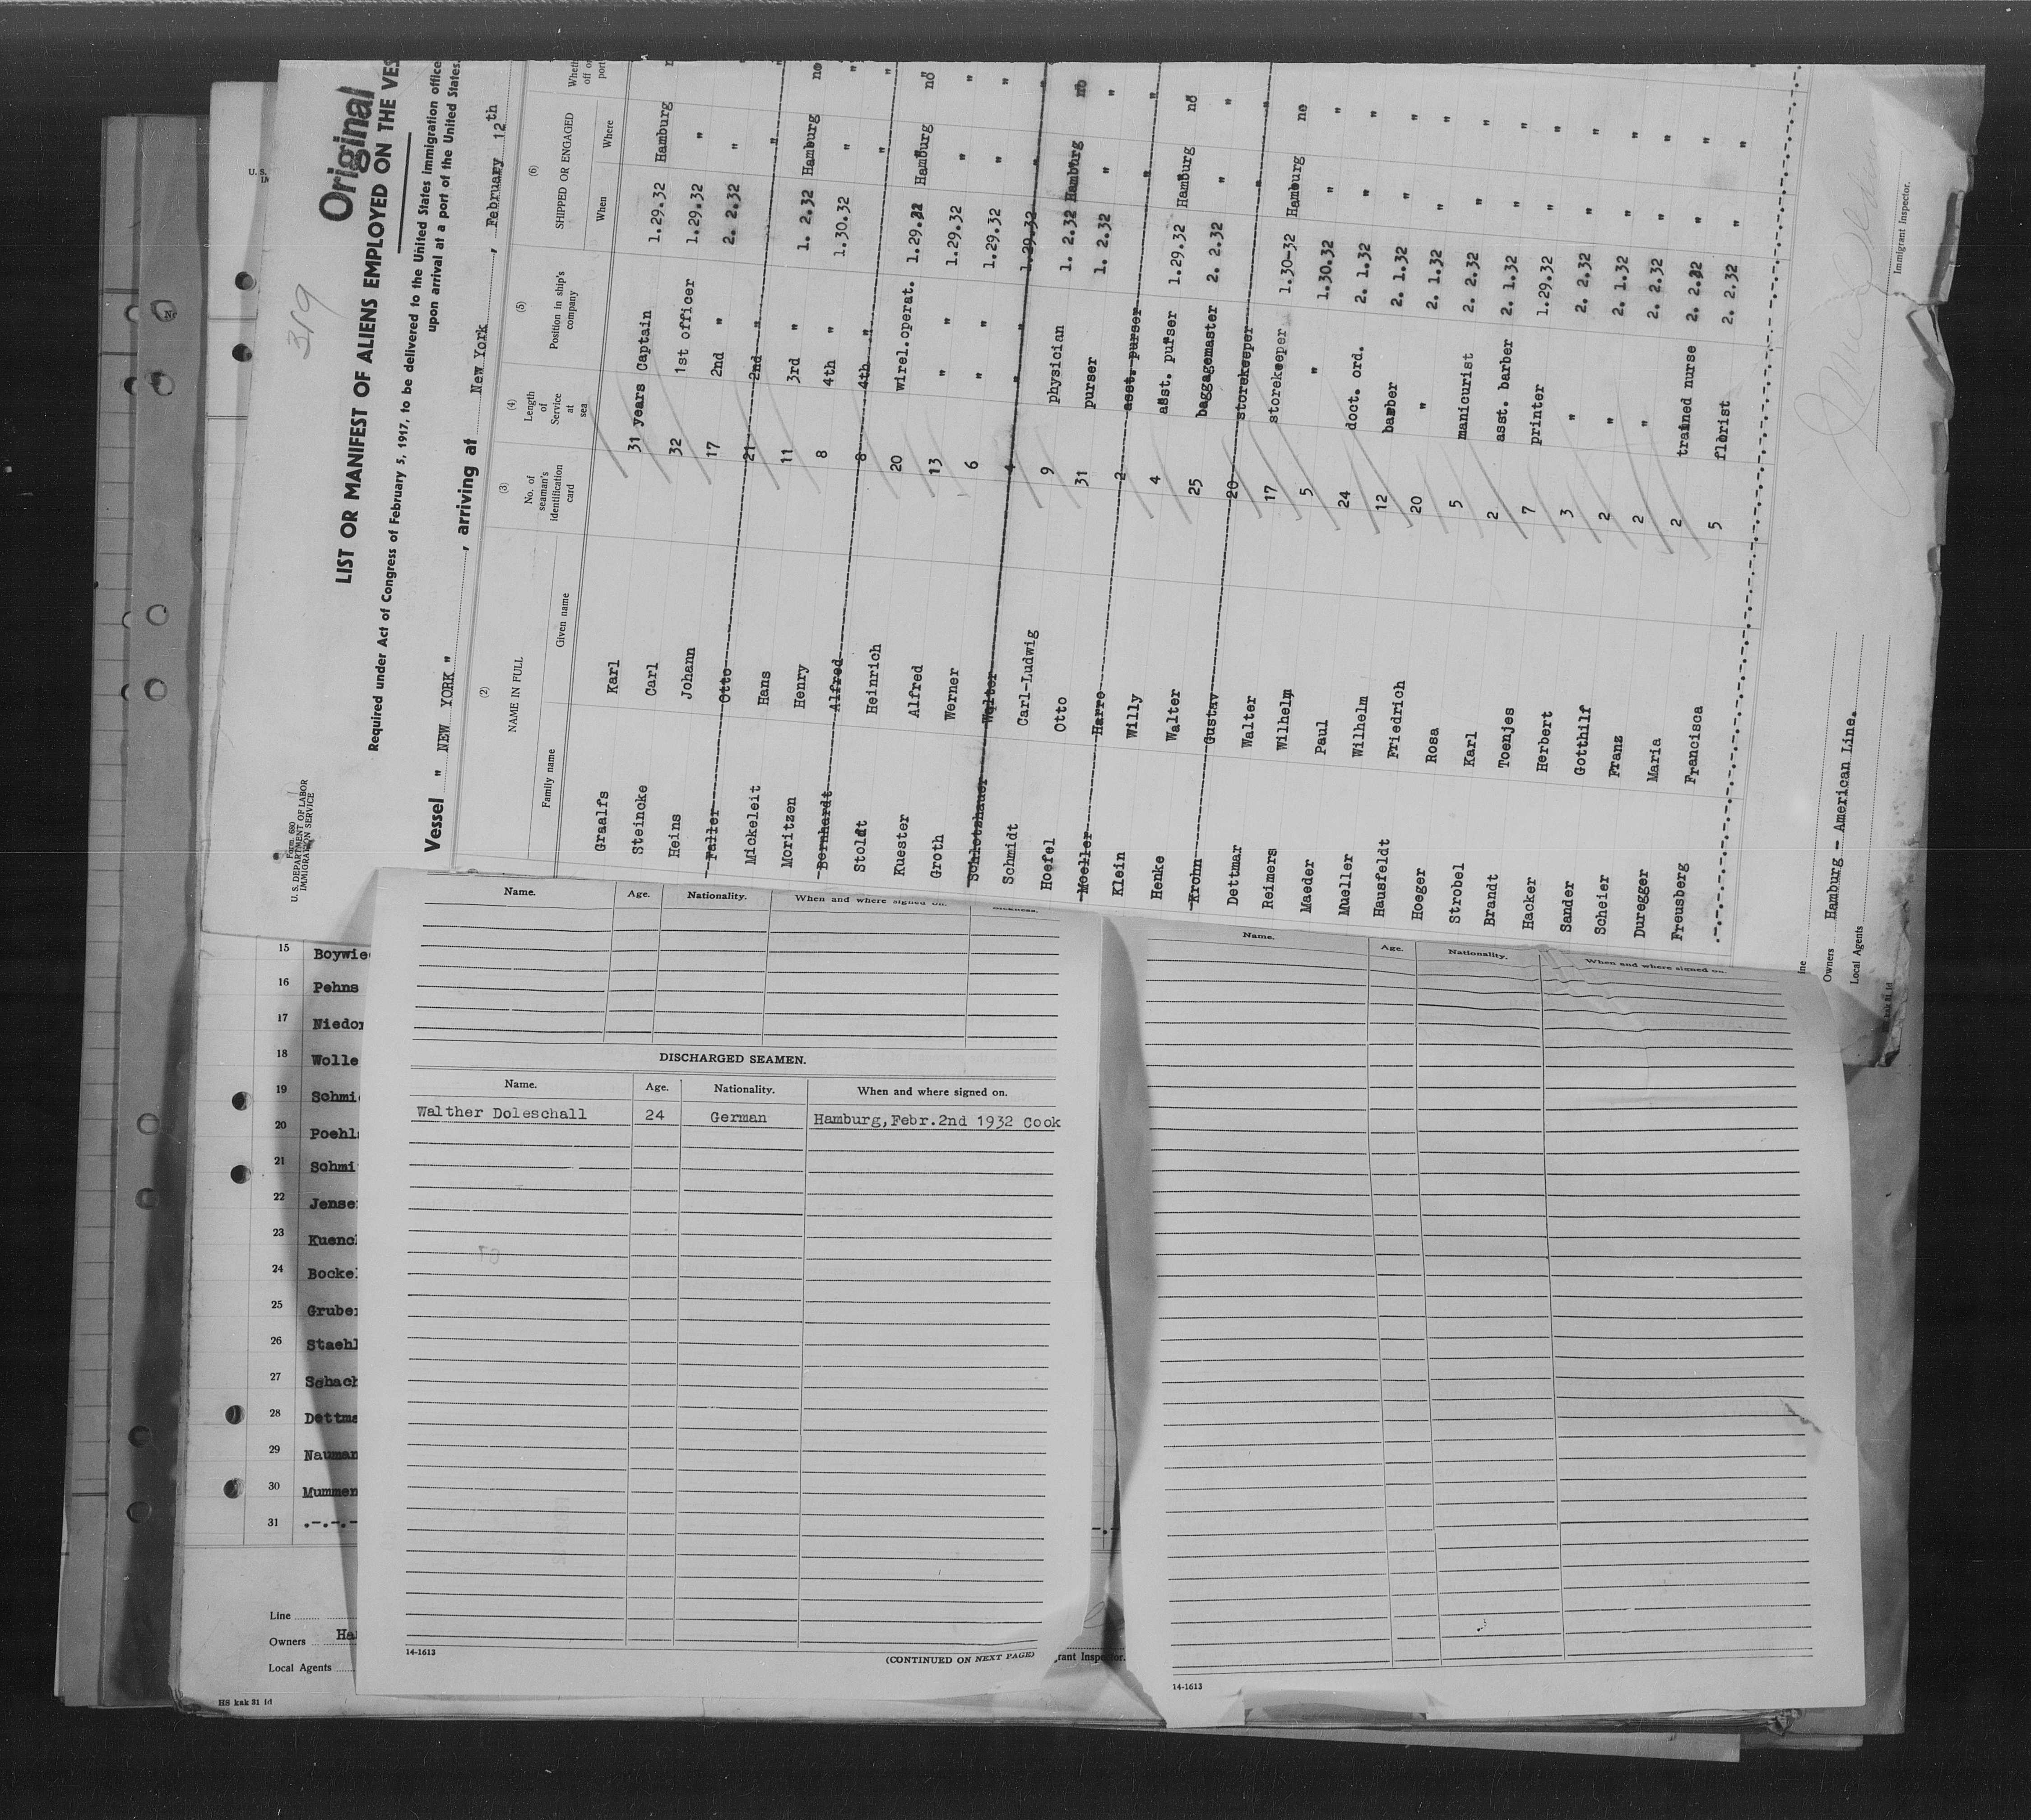 Original
319
Form 680
U. S. DEPARTMENT OF LABOR
IMMIGRATION SERVICE
LIST OR MANIFEST OF ALIENS EMPLOYED ON THE VES
Required under Act of Congress of February 5, 1917, to be delivered to the United States immigration office
upon arrival at a port of the United States.
Vessel " NEW YORK " , arriving at New York , February 12th
(2) (3) (4) (5) (6)
NAME IN FULL No. of seaman's identification card Length of Service at sea Position in ship's company SHIPPED OR ENGAGED
Family name Given name When Where
Graalfs Karl 31 years Captain 1.29.32 Hamburg
Steincke Carl 32 1st officer 1.29.32 "
Heins Johann 17 2nd " 2. 2.32 "
Faller Otto 21 2nd " "
Mickeleit Hans 11 3rd " 1. 2.32 Hamburg no
Moritzen Henry 8 4th " 1.30.32 " "
Bernhardt Alfred 8 4th " " "
Stoldt Heinrich 20 wirel.operat. 1.29.32 Hamburg no
Kuester Alfred 13 " 1.29.32 " "
Groth Werner 6 " 1.29.32 " "
Schlotzhauer Walter 4 " 1.29.32 " "
Schmidt Carl-Ludwig 9 physician 1. 2.32 Hamburg no
Hoefel Otto 31 purser 1. 2.32 " "
Moeller Harro 2 asst. purser " "
Klein Willy 4 asst. purser 1.29.32 Hamburg no
Henke Walter 25 baggagemaster 2. 2.32 " "
Krohn Gustav 20 storekeeper " "
Dettmar Walter 17 storekeeper 1.30-32 Hamburg no
Reimers Wilhelm 5 " 1.30.32 " "
Maeder Paul 24 doct. ord. 2. 1.32 " "
Mueller Wilhelm 12 barber 2. 1.32 " "
Hausfeldt Friedrich 20 " 2. 1.32 " "
Hoeger Rosa 5 manicurist 2. 2.32 " "
Strobel Karl 2 asst. barber 2. 1.32 " "
Brandt Toenjes 7 printer 1.29.32 " "
Hacker Herbert 3 " 2. 2.32 " "
Sander Gotthilf 2 " 2. 1.32 " "
Scheier Franz 2 " 2. 2.32 " "
Duregger Maria 2 trained nurse 2. 2.32 " "
Freusberg Francisca 5 florist 2. 2.32 " "
Owners Hamburg - American Line.
Local Agents
Immigrant Inspector.
15 Boywie
16 Pehns
17 Niedor
18 Wolle
19 Schmi
20 Poehls
21 Schmi
22 Jense
23 Kuenc
24 Bocke
25 Gruber
26 Staehl
27 Schach
28 Dettma
29 Nauman
30 Mummen
31 .-.-.-
Line
Owners Ha
Local Agents
HS kak 31 fd
Name. Age. Nationality. When and where signed on.
DISCHARGED SEAMEN.
Name. Age. Nationality. When and where signed on.
Walther Doleschall 24 German Hamburg,Febr.2nd 1932 Cook
14-1613 (CONTINUED ON NEXT PAGE)
rant Inspector.
Name. Age. Nationality. When and where signed on.
14-1613